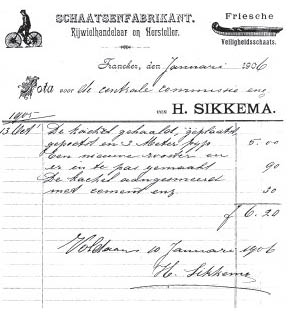 SCHAATSENFABRIKANT.
Rijwielhandelaar en Hersteller.
Friesche
Veiligheidsschaats.
Franeker, den Januari 1906
Nota voor de centrale commissie enz
van H. SIKKEMA.
1905
13 Oct De kachel gehaald, geplaatst
gepoetst en 3 Meter pijp 5.00
Een nieuwe rooster en
er in te pas gemaakt 90
De kachel aangesmeerd
met cement enz 30
f 6.20
Voldaan 10 Januari 1906
H. Sikkema